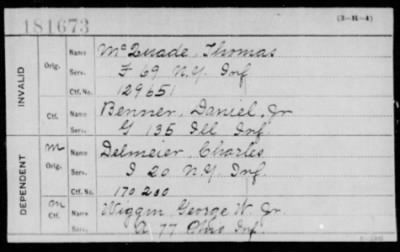 181673
(3-H-4)
INVALID
Orig.
Name McQuade, Thomas
Serv. F 69 N.Y. Inf
Ctf. No. 129651
Ctf.
Name Benner, Daniel, Jr
Serv. G 135 Ill Inf
DEPENDENT
M
Orig.
Name Delmeier, Charles
Serv. I 20 N.Y. Inf.
Ctf. No. 170200
M
Ctf.
Name Wiggin, George W. Jr.
Serv. A 77 Ohio Inf